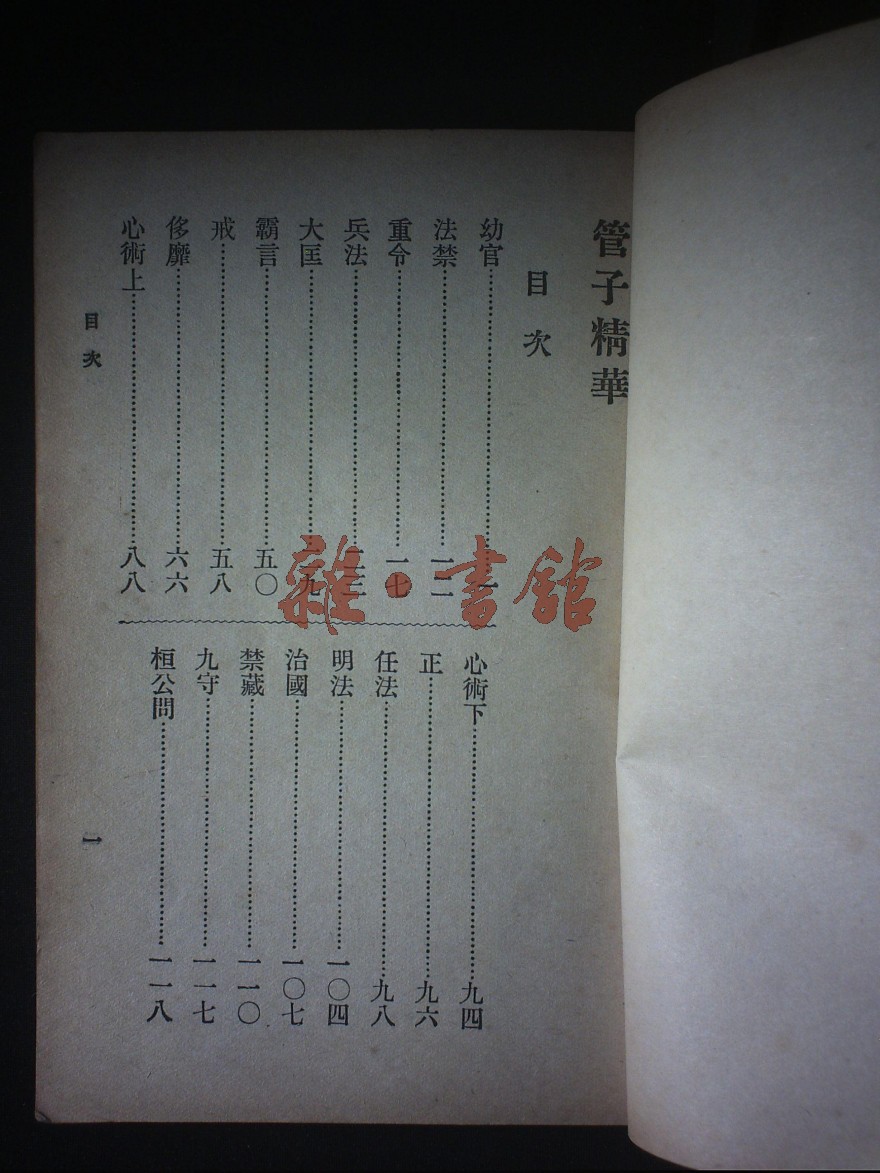 管子精華
目次
幼官……一
法禁……一二
重令……一七
兵法……二三
大匡……二九
霸言……五〇
戒……五八
侈靡……六六
心術上……八八
心術下……九四
正……九六
任法……九八
明法……一〇四
治國……一〇七
禁藏……一一〇
九守……一一七
桓公問……一一八
目次
一
雜·書館